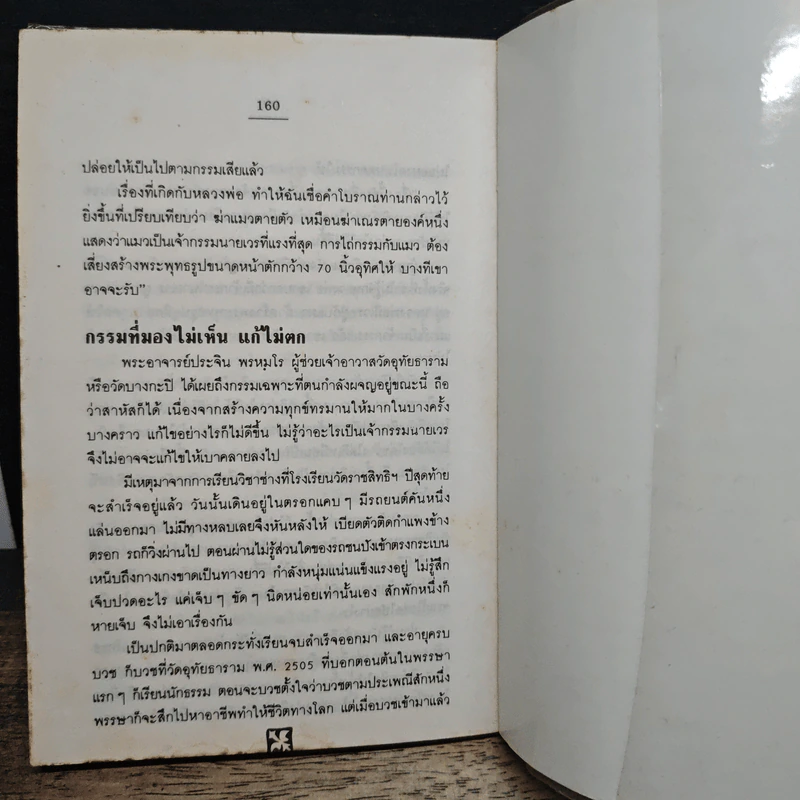 160
ปล่อยให้เป็นไปตามกรรมเสียแล้ว
เรื่องที่เกิดกับหลวงพ่อ ทำให้ฉันเชื่อคำโบราณท่านกล่าวไว้
ยิ่งขึ้นที่เปรียบเทียบว่า ฆ่าแมวตายตัว เหมือนฆ่าเณรตายองค์หนึ่ง
แสดงว่าแมวเป็นเจ้ากรรมนายเวรที่แรงที่สุด การไถ่กรรมกับแมว ต้อง
เสี่ยงสร้างพระพุทธรูปขนาดหน้าตักกว้าง 70 นิ้วอุทิศให้ บางทีเขา
อาจจะรับ”
กรรมที่มองไม่เห็น แก้ไม่ตก
พระอาจารย์ประจิน พรหุมโร ผู้ช่วยเจ้าอาวาสวัดอุทัยธาราม
หรือวัดบางกะปิ ได้เผยถึงกรรมเฉพาะที่ตนกำลังผจญอยู่ขณะนี้ ถือ
ว่าสาหัสก็ได้ เนื่องจากสร้างความทุกข์ทรมานให้มากในบางครั้ง
บางคราว แก้ไขอย่างไรก็ไม่ดีขึ้น ไม่รู้ว่าอะไรเป็นเจ้ากรรมนายเวร
จึงไม่อาจจะแก้ไขให้เบาคลายลงไป
มีเหตุมาจากการเรียนวิชาช่างที่โรงเรียนวัดราชสิทธิฯ ปีสุดท้าย
จะสำเร็จอยู่แล้ว วันนั้นเดินอยู่ในตรอกแคบ ๆ มีรถยนต์คันหนึ่ง
แล่นออกมา ไม่มีทางหลบเลยจึงหันหลังให้ เบียดตัวติดกำแพงข้าง
ตรอก รถก็วิ่งผ่านไป ตอนผ่านไม่รู้ส่วนใดของรถชนปังเข้าตรงกระเบน
เหน็บถึงกางเกงขาดเป็นทางยาว กำลังหนุ่มแน่นแข็งแรงอยู่ ไม่รู้สึก
เจ็บปวดอะไร แค่เจ็บ ๆ ขัด ๆ นิดหน่อยเท่านั้นเอง สักพักหนึ่งก็
หายเจ็บ จึงไม่เอาเรื่องกัน
เป็นปกติมาตลอดกระทั่งเรียนจบสำเร็จออกมา และอายุครบ
บวช ก็บวชที่วัดอุทัยธาราม พ.ศ. 2505 ที่บอกตอนต้นในพรรษา
แรก ๆ ก็เรียนนักธรรม ตอนจะบวชตั้งใจว่าบวชตามประเพณีสักหนึ่ง
พรรษาก็จะสึกไปหาอาชีพทำให้ชีวิตทางโลก แต่เมื่อบวชเข้ามาแล้ว